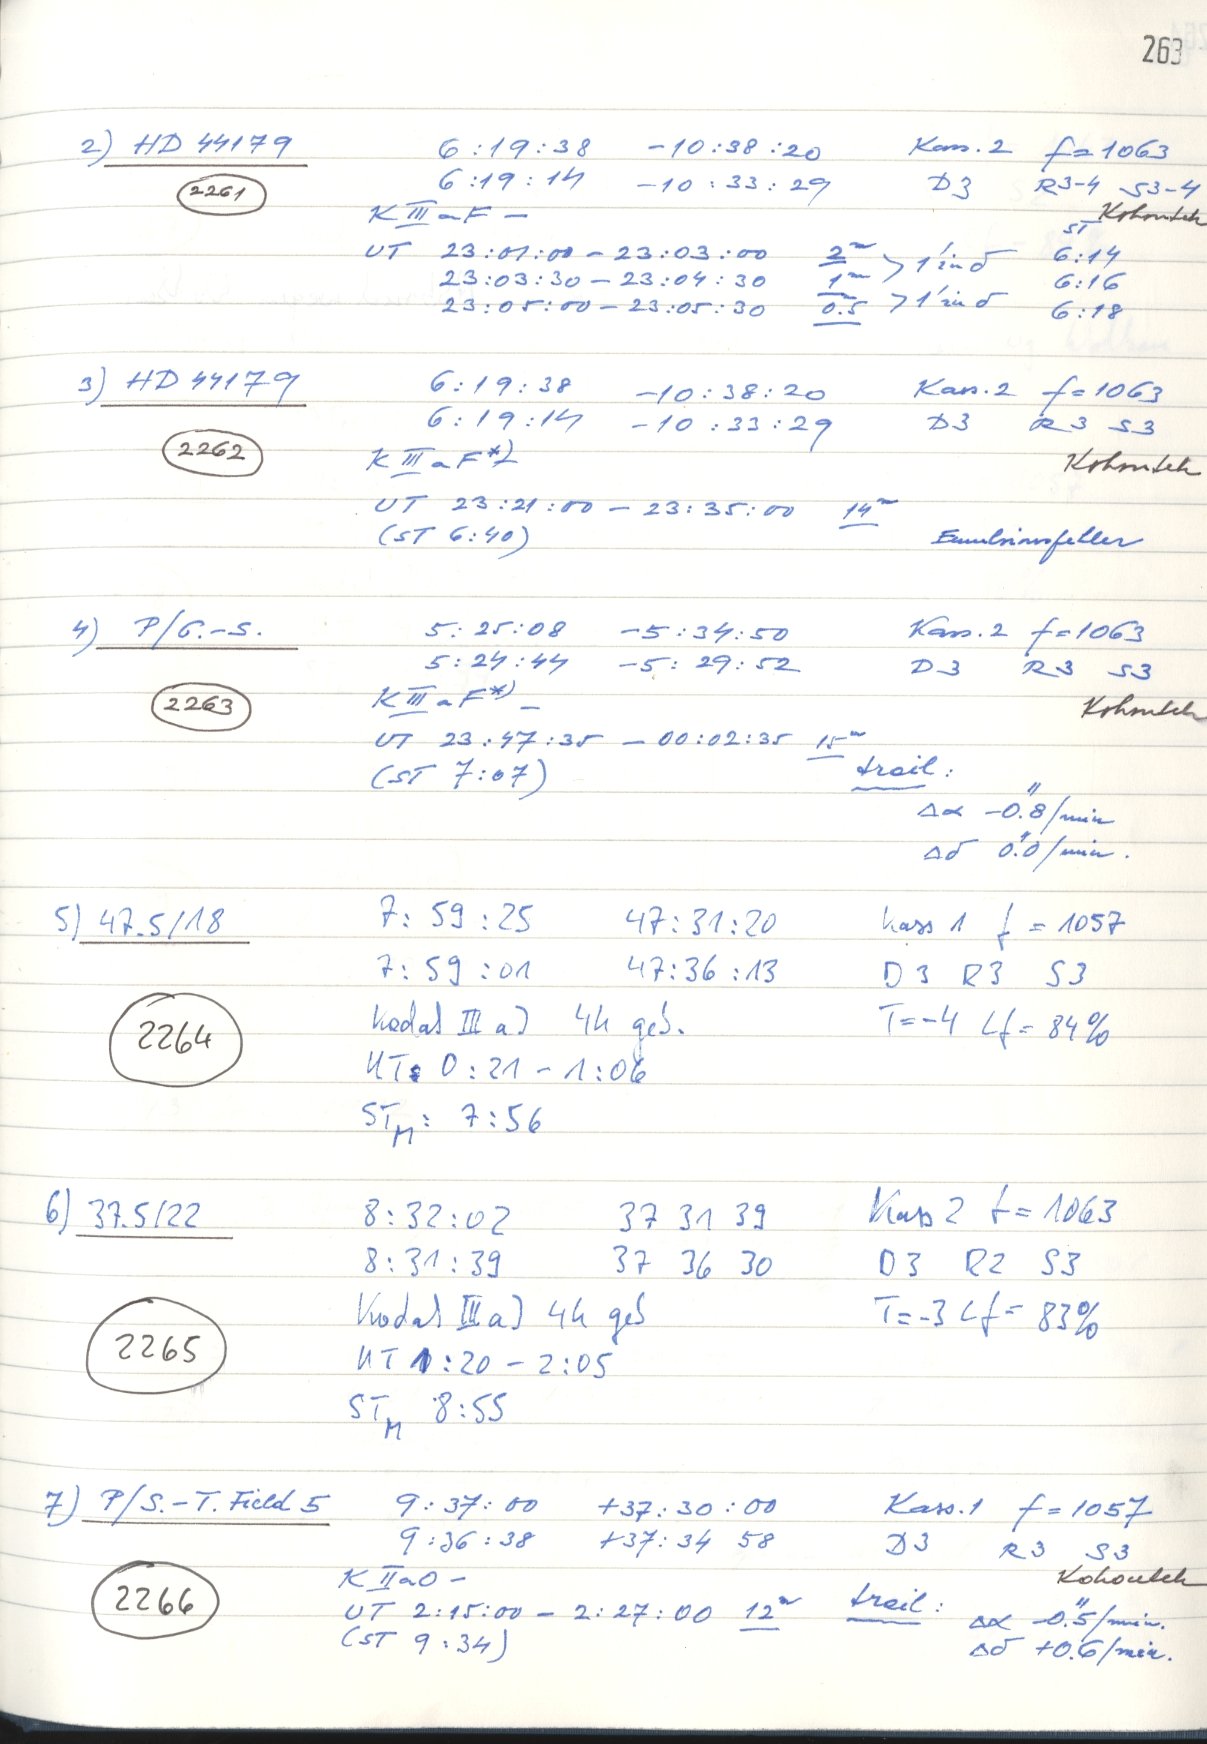 263
2) HD 44179 6:19:38 -10:38:20 Kass. 2 f=1063
2261 6:19:14 -10:33:29 D3 R3-4 S3-4
K III a F - Kohoutek
ST
UT 23:01:00 - 23:03:00 2m > 1' in δ 6:14
23:03:30 - 23:04:30 1m 6:16
23:05:00 - 23:05:30 0.5 > 1' in δ 6:18
3) HD 44179 6:19:38 -10:38:20 Kass. 2 f=1063
6:19:14 -10:33:29 D3 R3 S3
2262 K III a F *) Kohoutek
UT 23:21:00 - 23:35:00 14m
(ST 6:40) Emulsionsfehler
4) P/G.-S. 5:25:08 -5:34:50 Kass. 2 f=1063
5:24:44 -5:29:52 D3 R3 S3
2263 K III a F *) - Kohoutek
UT 23:47:35 - 00:02:35 15m
(ST 7:07) trail:
Δα -0."8/min
Δδ 0."0/min.
5) 47.5/18 7:59:25 47:31:20 Kass 1 f = 1057
7:59:01 47:36:13 D3 R3 S3
2264 Kodak III a J 4h geb. T=-4 Lf = 84%
UT: 0:21 - 1:06
STM: 7:56
6) 37.5/22 8:32:02 37 31 39 Kass 2 f = 1063
8:31:39 37 36 30 D3 R2 S3
2265 Kodak III a J 4h geb T=-3 Lf = 83%
UT 1:20 - 2:05
STM 8:55
7) P/S.-T. Field 5 9:37:00 +37:30:00 Kass. 1 f=1057
9:36:38 +37:34 58 D3 R3 S3
2266 K II a O - Kohoutek
UT 2:15:00 - 2:27:00 12m trail: Δα -0."5/min.
(ST 9:34) Δδ +0.6/min.